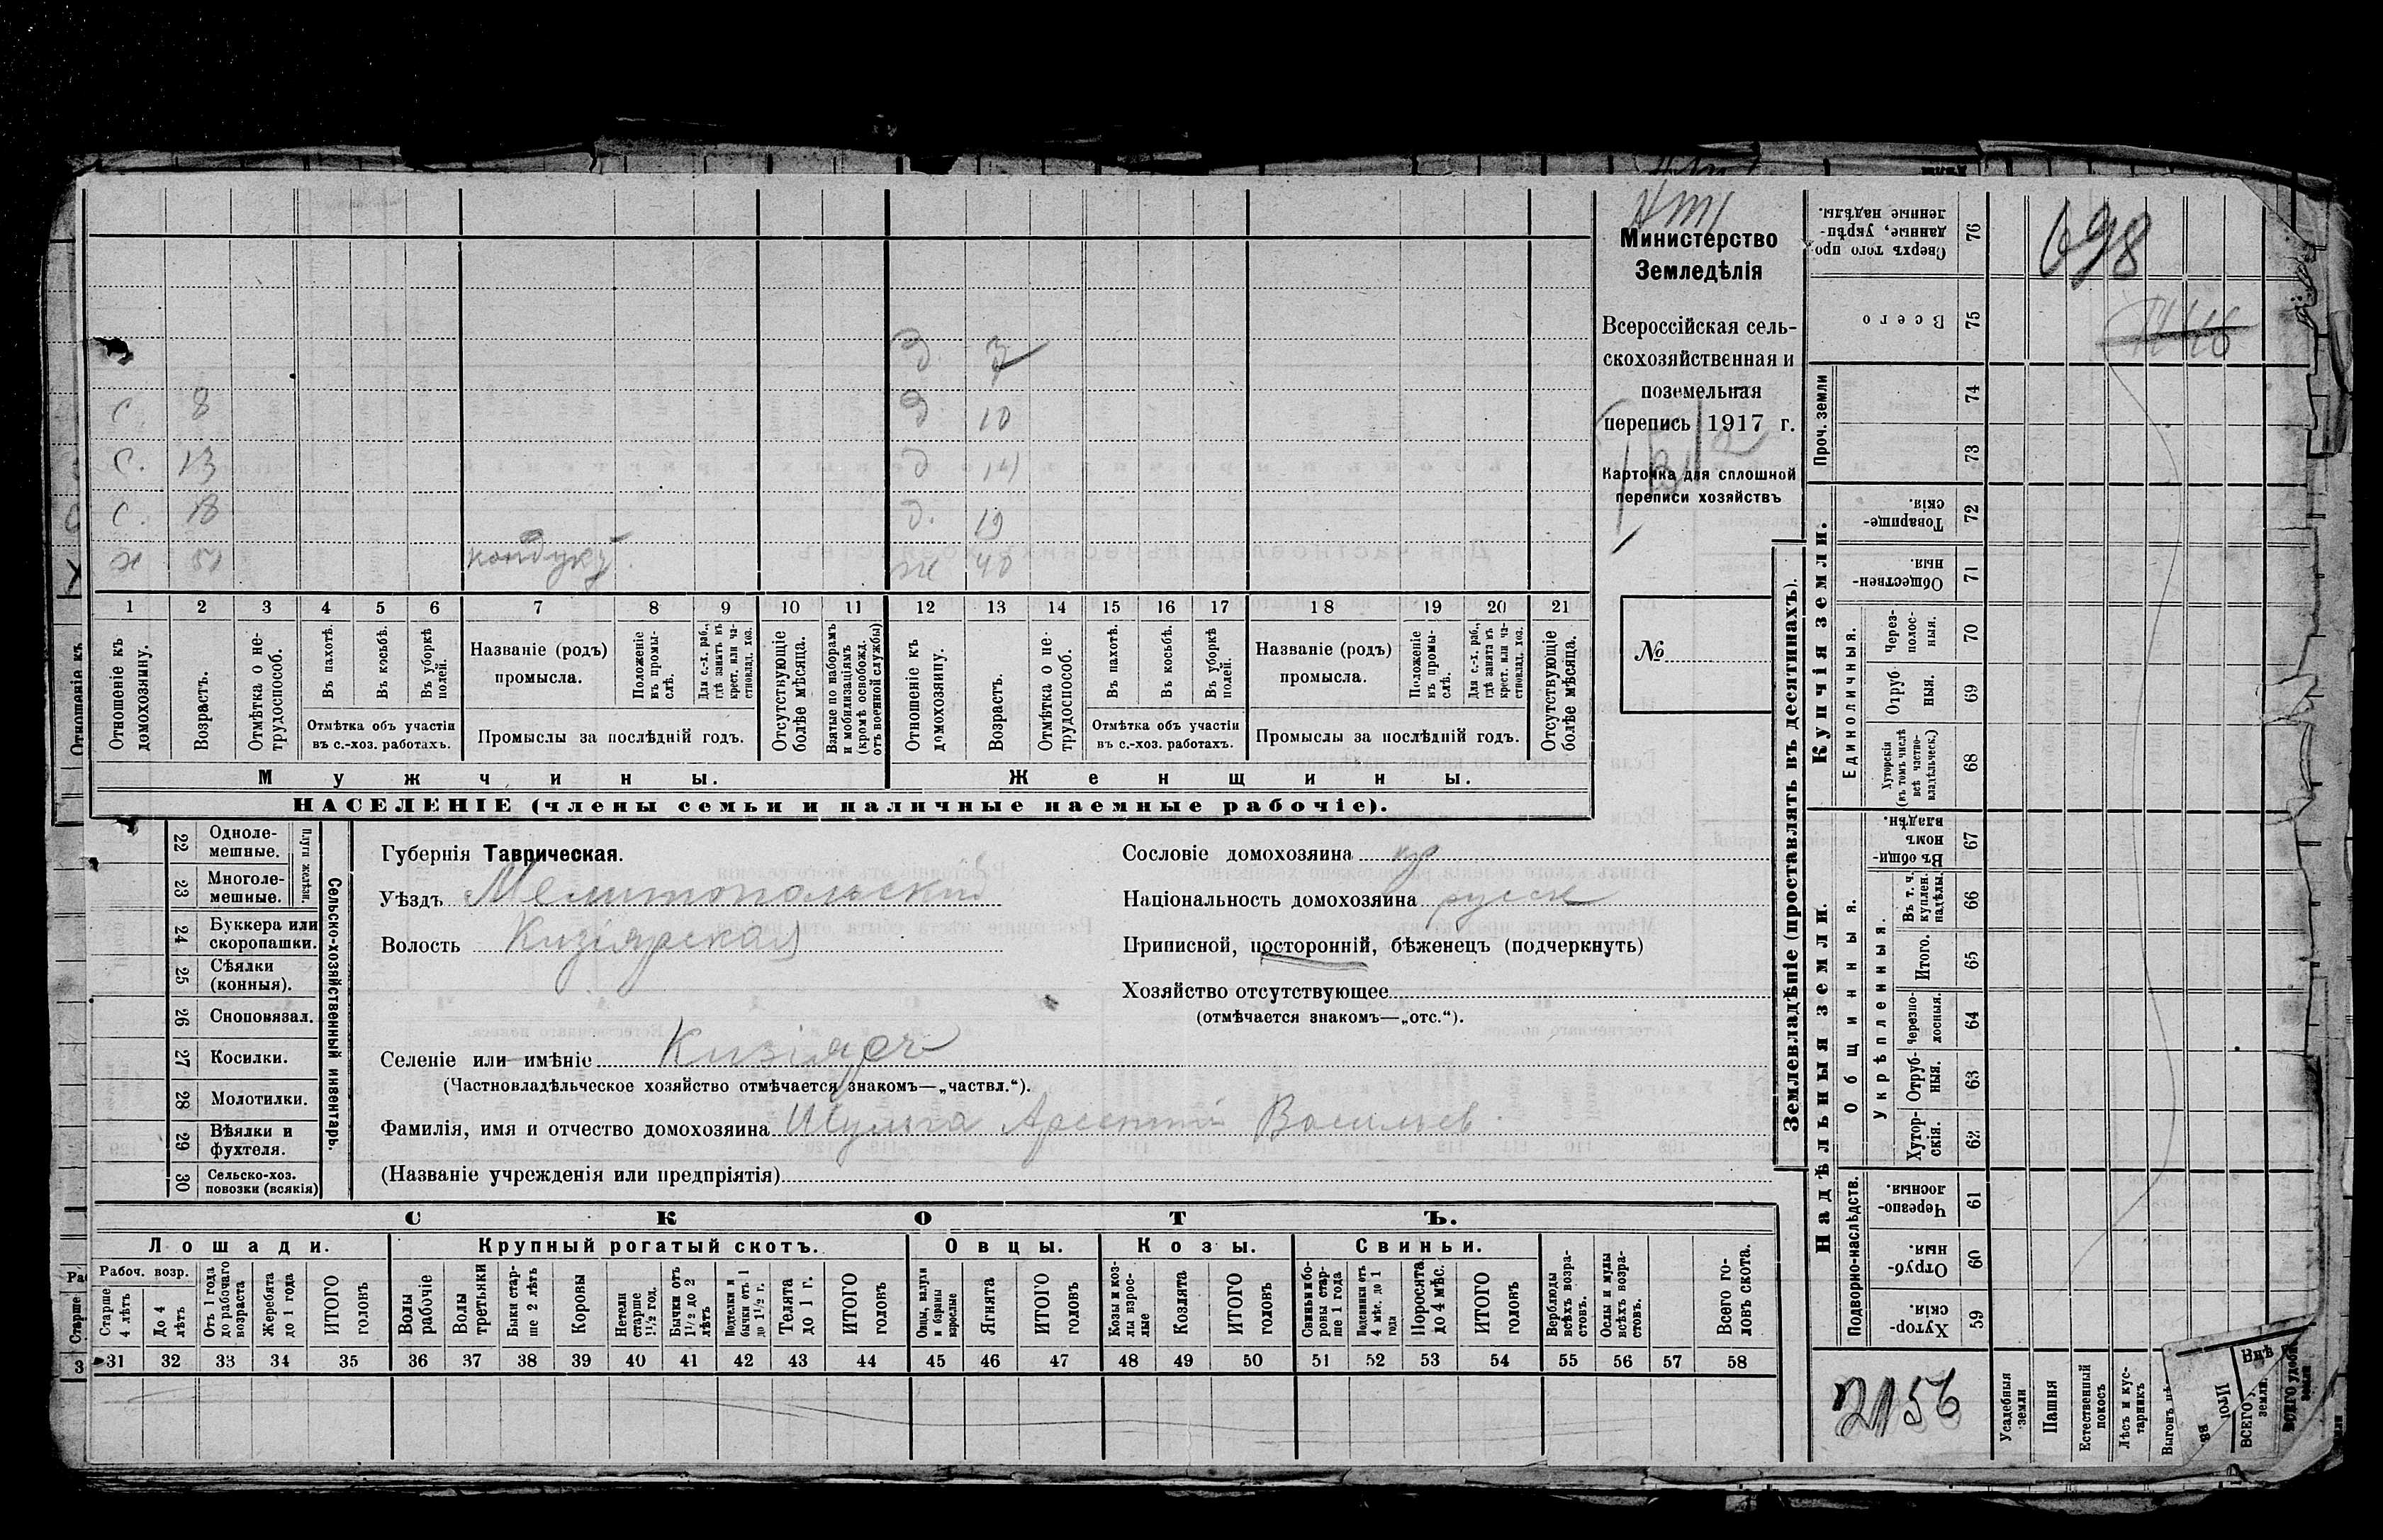 Министерство
Земледѣлія
Всероссійская сель-
скохозяйственная и
поземельная
перепись 1917 г.
Карточка для сплошной
переписи хозяйствъ
№
д. 7
с. 8 д. 10
с. 13 д 14
с. 18 д. 19
х 51 кондукт. ж 40
1 2 3 4 5 6 7 8 9 10 11 12 13 14 15 16 17 18 19 20 21
Отношеніе къ домохозяину.
Возрастъ.
Отмѣтка о не-трудоспособ.
Въ пахотѣ.
Въ косьбѣ.
Въ уборкѣ полей.
Отмѣтка объ участіи
въ с.-хоз. работахъ.
Названіе (родъ)
промысла.
Положеніе въ промы-слѣ.
Для с.-х. раб., гдѣ занятъ въ крест. или ча-стновлад. хоз.
Промыслы за послѣдній годъ.
Отсутствующіе болѣе мѣсяца.
Взятые по наборамъ и мобилизаціямъ (кромѣ освобожд. отъ военной службы)
Отношеніе къ домохозяину.
Возрастъ.
Отмѣтка о не-трудоспособ.
Въ пахотѣ.
Въ косьбѣ.
Въ уборкѣ полей.
Отмѣтка объ участіи
въ с.-хоз. работахъ.
Названіе (родъ)
промысла.
Положеніе въ промы-слѣ.
Для с.-х. раб., гдѣ занята въ крест. или ча-стновлад. хоз.
Промыслы за послѣдній годъ.
Отсутствующіе болѣе мѣсяца.
Мужчины. Женщины.
НАСЕЛЕНІЕ (члены семьи и наличные наемные рабочіе).
Сельско-хозяйственный инвентарь.
Плуги желѣзн.
22 Одноле-мешные.
23 Многоле-мешные.
24 Буккера или скоропашки.
25 Сѣялки (конныя).
26 Сноповязал.
27 Косилки.
28 Молотилки.
29 Вѣялки и фухтеля.
30 Сельско-хоз. повозки (всякія)
Губернія Таврическая.
Уѣздъ Мелитопольский
Волость Кизіярская
Сословіе домохозяина кр
Національность домохозяина русск
Приписной, посторонній, бѣженецъ (подчеркнуть)
Хозяйство отсутствующее
(отмѣчается знакомъ—„отс.“).
Селеніе или имѣніе Кизіяръ
(Частновладѣльческое хозяйство отмѣчается знакомъ—„частвл.“).
Фамилія, имя и отчество домохозяина Шульга Арсентій Васильев.
(Названіе учрежденія или предпріятія)
СКОТЪ.
Лошади. Крупный рогатый скотъ. Овцы. Козы. Свиньи.
Рабоч. возр.
Старше 4 лѣтъ
До 4 лѣтъ
Отъ 1 года до рабочаго возраста
Жеребята до 1 года
ИТОГО головъ
Волы рабочіе
Волы третьяки
Быки стар-ше 2 лѣтъ
Коровы
Нетели старше 1½ год.
Бычки отъ 1½ до 2 лѣтъ
Подтелки и бычки отъ 1 до 1½ г.
Телята до 1 г.
ИТОГО головъ
Овцы, валухи и бараны взрослые
Ягнята
ИТОГО головъ
Козы и коз-лы взрос-лые
Козлята
ИТОГО головъ
Свиньи и бо-ровы стар-ше 1 года
Подсвинки отъ 4 мѣс. до 1 года
Поросята до 4 мѣс.
ИТОГО головъ
Верблюды всѣхъ возра-стовъ.
Ослы и мулы всѣхъ возра-стовъ.
Всего го-ловъ скота.
31 32 33 34 35 36 37 38 39 40 41 42 43 44 45 46 47 48 49 50 51 52 53 54 55 56 57 58
Землевладѣніе (проставлять въ десятинахъ).
Надѣльныя земли. Купчія земли.
Проч. земли
Общинныя.
Укрѣпленныя.
Подворно-наслѣдств.
Единоличныя.
76 Сверхъ того про-данные, укрѣп-ленные надѣлы.
75 Всего
74
73
72 Товарище-скія.
71 Обществен-ныя.
70 Через-полос-ныя.
69 Отруб-ныя.
68 Хуторскія (въ томъ числѣ всѣ частно-владѣльческ.)
67 Въ общин-номъ владѣн.
66 Въ т. ч. куплен. надѣлы.
65 Итого.
64 Черезпо-лосныя.
63 Отруб-ныя.
62 Хутор-скія.
61 Черезпо-лосныя.
60 Отруб-ныя.
59 Хутор-скія.
Усадебныя земли
Пашня
Естественный покосъ
Лѣсъ и кус-тарникъ
698
2156